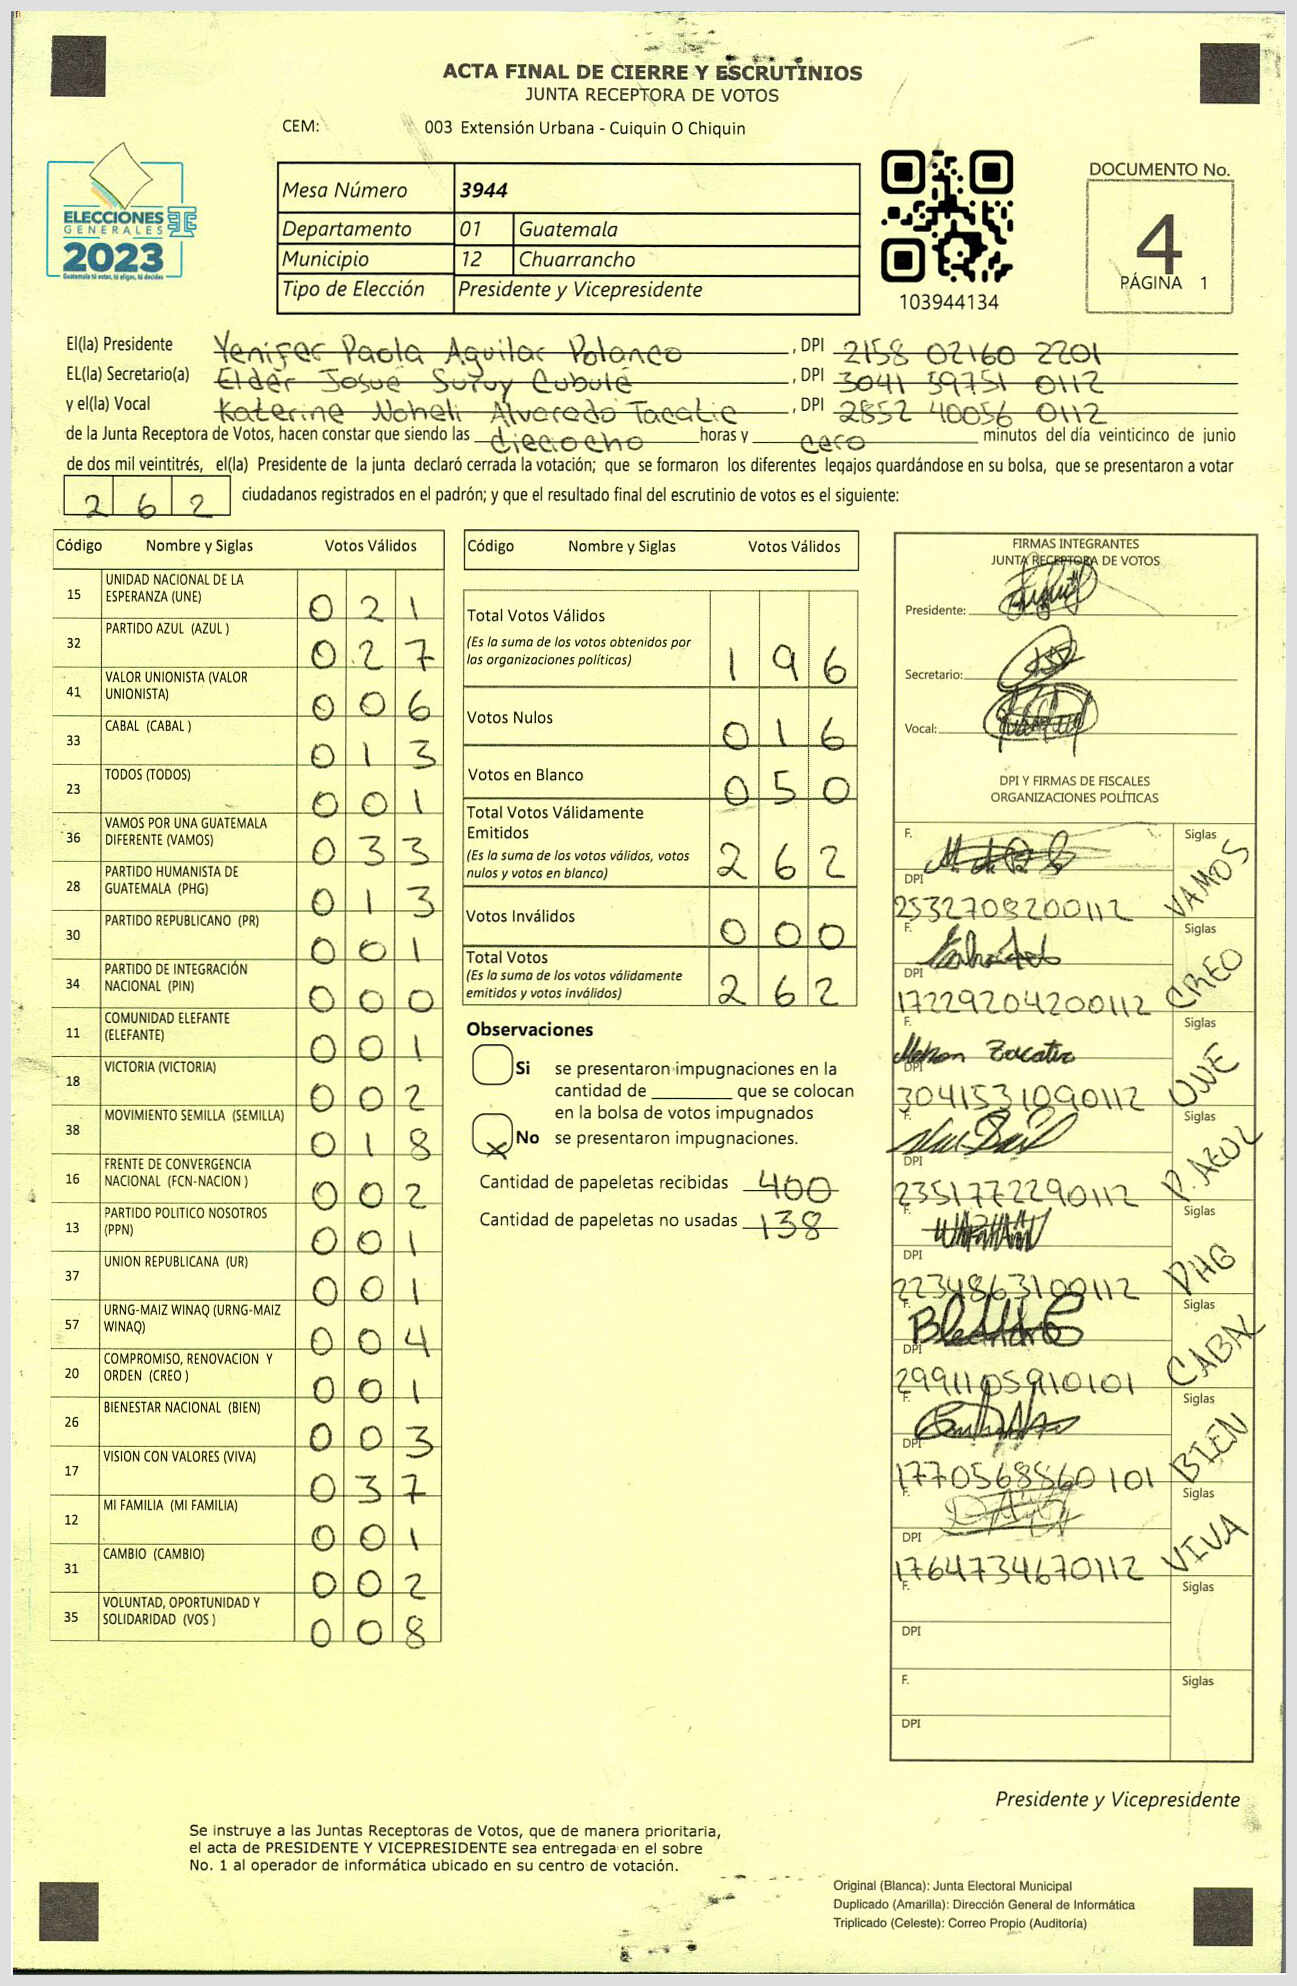 ACTA FINAL DE CIERRE Y ESCRUTINIOS
JUNTA RECEPTORA DE VOTOS
CEM: 003 Extensión Urbana - Cuiquin O Chiquin
ELECCIONES
GENERALES
2023
Guatemala tú votas, tú eliges, tú decides
Mesa Número 3944
Departamento 01 Guatemala
Municipio 12 Chuarrancho
Tipo de Elección Presidente y Vicepresidente
103944134
DOCUMENTO No.
4
PÁGINA 1
El(la) Presidente Yenifer Paola Aguilar Polanco, DPI 2158 02160 2201
EL(la) Secretario(a) Elder Josué Suruy Cubulé, DPI 3041 59751 0112
y el(la) Vocal Katerine Noheli Alvaredo Tacatic, DPI 2852 40056 0112
de la Junta Receptora de Votos, hacen constar que siendo las dieciocho horas y cero minutos del día veinticinco de junio
de dos mil veintitrés, el(la) Presidente de la junta declaró cerrada la votación; que se formaron los diferentes legajos guardándose en su bolsa, que se presentaron a votar
262 ciudadanos registrados en el padrón; y que el resultado final del escrutinio de votos es el siguiente:
Código Nombre y Siglas Votos Válidos
15 UNIDAD NACIONAL DE LA ESPERANZA (UNE) 021
32 PARTIDO AZUL (AZUL ) 027
41 VALOR UNIONISTA (VALOR UNIONISTA) 006
33 CABAL (CABAL ) 013
23 TODOS (TODOS) 001
36 VAMOS POR UNA GUATEMALA DIFERENTE (VAMOS) 033
28 PARTIDO HUMANISTA DE GUATEMALA (PHG) 013
30 PARTIDO REPUBLICANO (PR) 001
34 PARTIDO DE INTEGRACIÓN NACIONAL (PIN) 000
11 COMUNIDAD ELEFANTE (ELEFANTE) 001
18 VICTORIA (VICTORIA) 002
38 MOVIMIENTO SEMILLA (SEMILLA) 018
16 FRENTE DE CONVERGENCIA NACIONAL (FCN-NACION ) 002
13 PARTIDO POLITICO NOSOTROS (PPN) 001
37 UNION REPUBLICANA (UR) 001
57 URNG-MAIZ WINAQ (URNG-MAIZ WINAQ) 004
20 COMPROMISO, RENOVACION Y ORDEN (CREO ) 001
26 BIENESTAR NACIONAL (BIEN) 003
17 VISION CON VALORES (VIVA) 037
12 MI FAMILIA (MI FAMILIA) 001
31 CAMBIO (CAMBIO) 002
35 VOLUNTAD, OPORTUNIDAD Y SOLIDARIDAD (VOS ) 008
Código Nombre y Siglas Votos Válidos
Total Votos Válidos 196
(Es la suma de los votos obtenidos por
las organizaciones políticas)
Votos Nulos 016
Votos en Blanco 050
Total Votos Válidamente
Emitidos 262
(Es la suma de los votos válidos, votos
nulos y votos en blanco)
Votos Inválidos 000
Total Votos 262
(Es la suma de los votos válidamente
emitidos y votos inválidos)
Observaciones
Si se presentaron impugnaciones en la
cantidad de ________ que se colocan
en la bolsa de votos impugnados
X No se presentaron impugnaciones.
Cantidad de papeletas recibidas 400
Cantidad de papeletas no usadas 138
FIRMAS INTEGRANTES
JUNTA RECEPTORA DE VOTOS
Presidente:
Secretario:
Vocal:
DPI Y FIRMAS DE FISCALES
ORGANIZACIONES POLÍTICAS
F. Siglas VAMOS
DPI 2532708200112
F. Siglas CREO
DPI 17229204200112
F. Siglas UNE
DPI 3041531090112
F. Siglas P. AZUL
DPI 2351772290112
F. Siglas PHG
DPI 2234863100112
F. Siglas CABAL
DPI 2991105910101
F. Siglas BIEN
DPI 1770568860101
F. Siglas VIVA
DPI 1764734670112
F. Siglas
DPI
F. Siglas
DPI
Presidente y Vicepresidente
Se instruye a las Juntas Receptoras de Votos, que de manera prioritaria,
el acta de PRESIDENTE Y VICEPRESIDENTE sea entregada en el sobre
No. 1 al operador de informática ubicado en su centro de votación.
Original (Blanca): Junta Electoral Municipal
Duplicado (Amarilla): Dirección General de Informática
Triplicado (Celeste): Correo Propio (Auditoría)